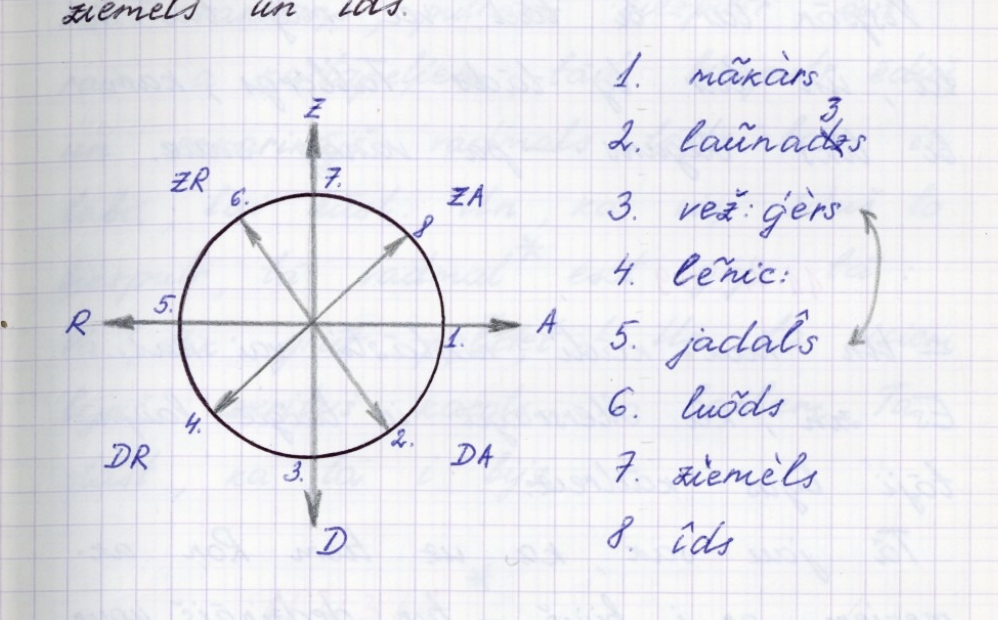 ziemels un îds.
Z
ZR
6.
7.
ZA
8
R
5.
1.
A
4.
2.
DR
3.
DA
D
1. mãkàrs
3
2. laũnadzs
3. vež: ģèrs
4. lẽnic:
5. jadal̂s
6. luõds
7. ziemèls
8. îds